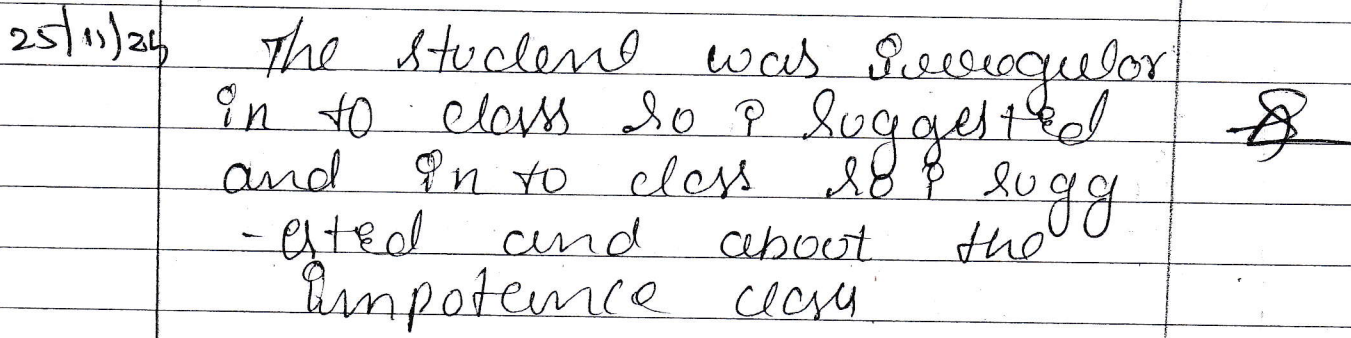 25/11/24 The student was irregular
in to class so I suggested
and in to class so I sugg
-ested and about the
impotance class